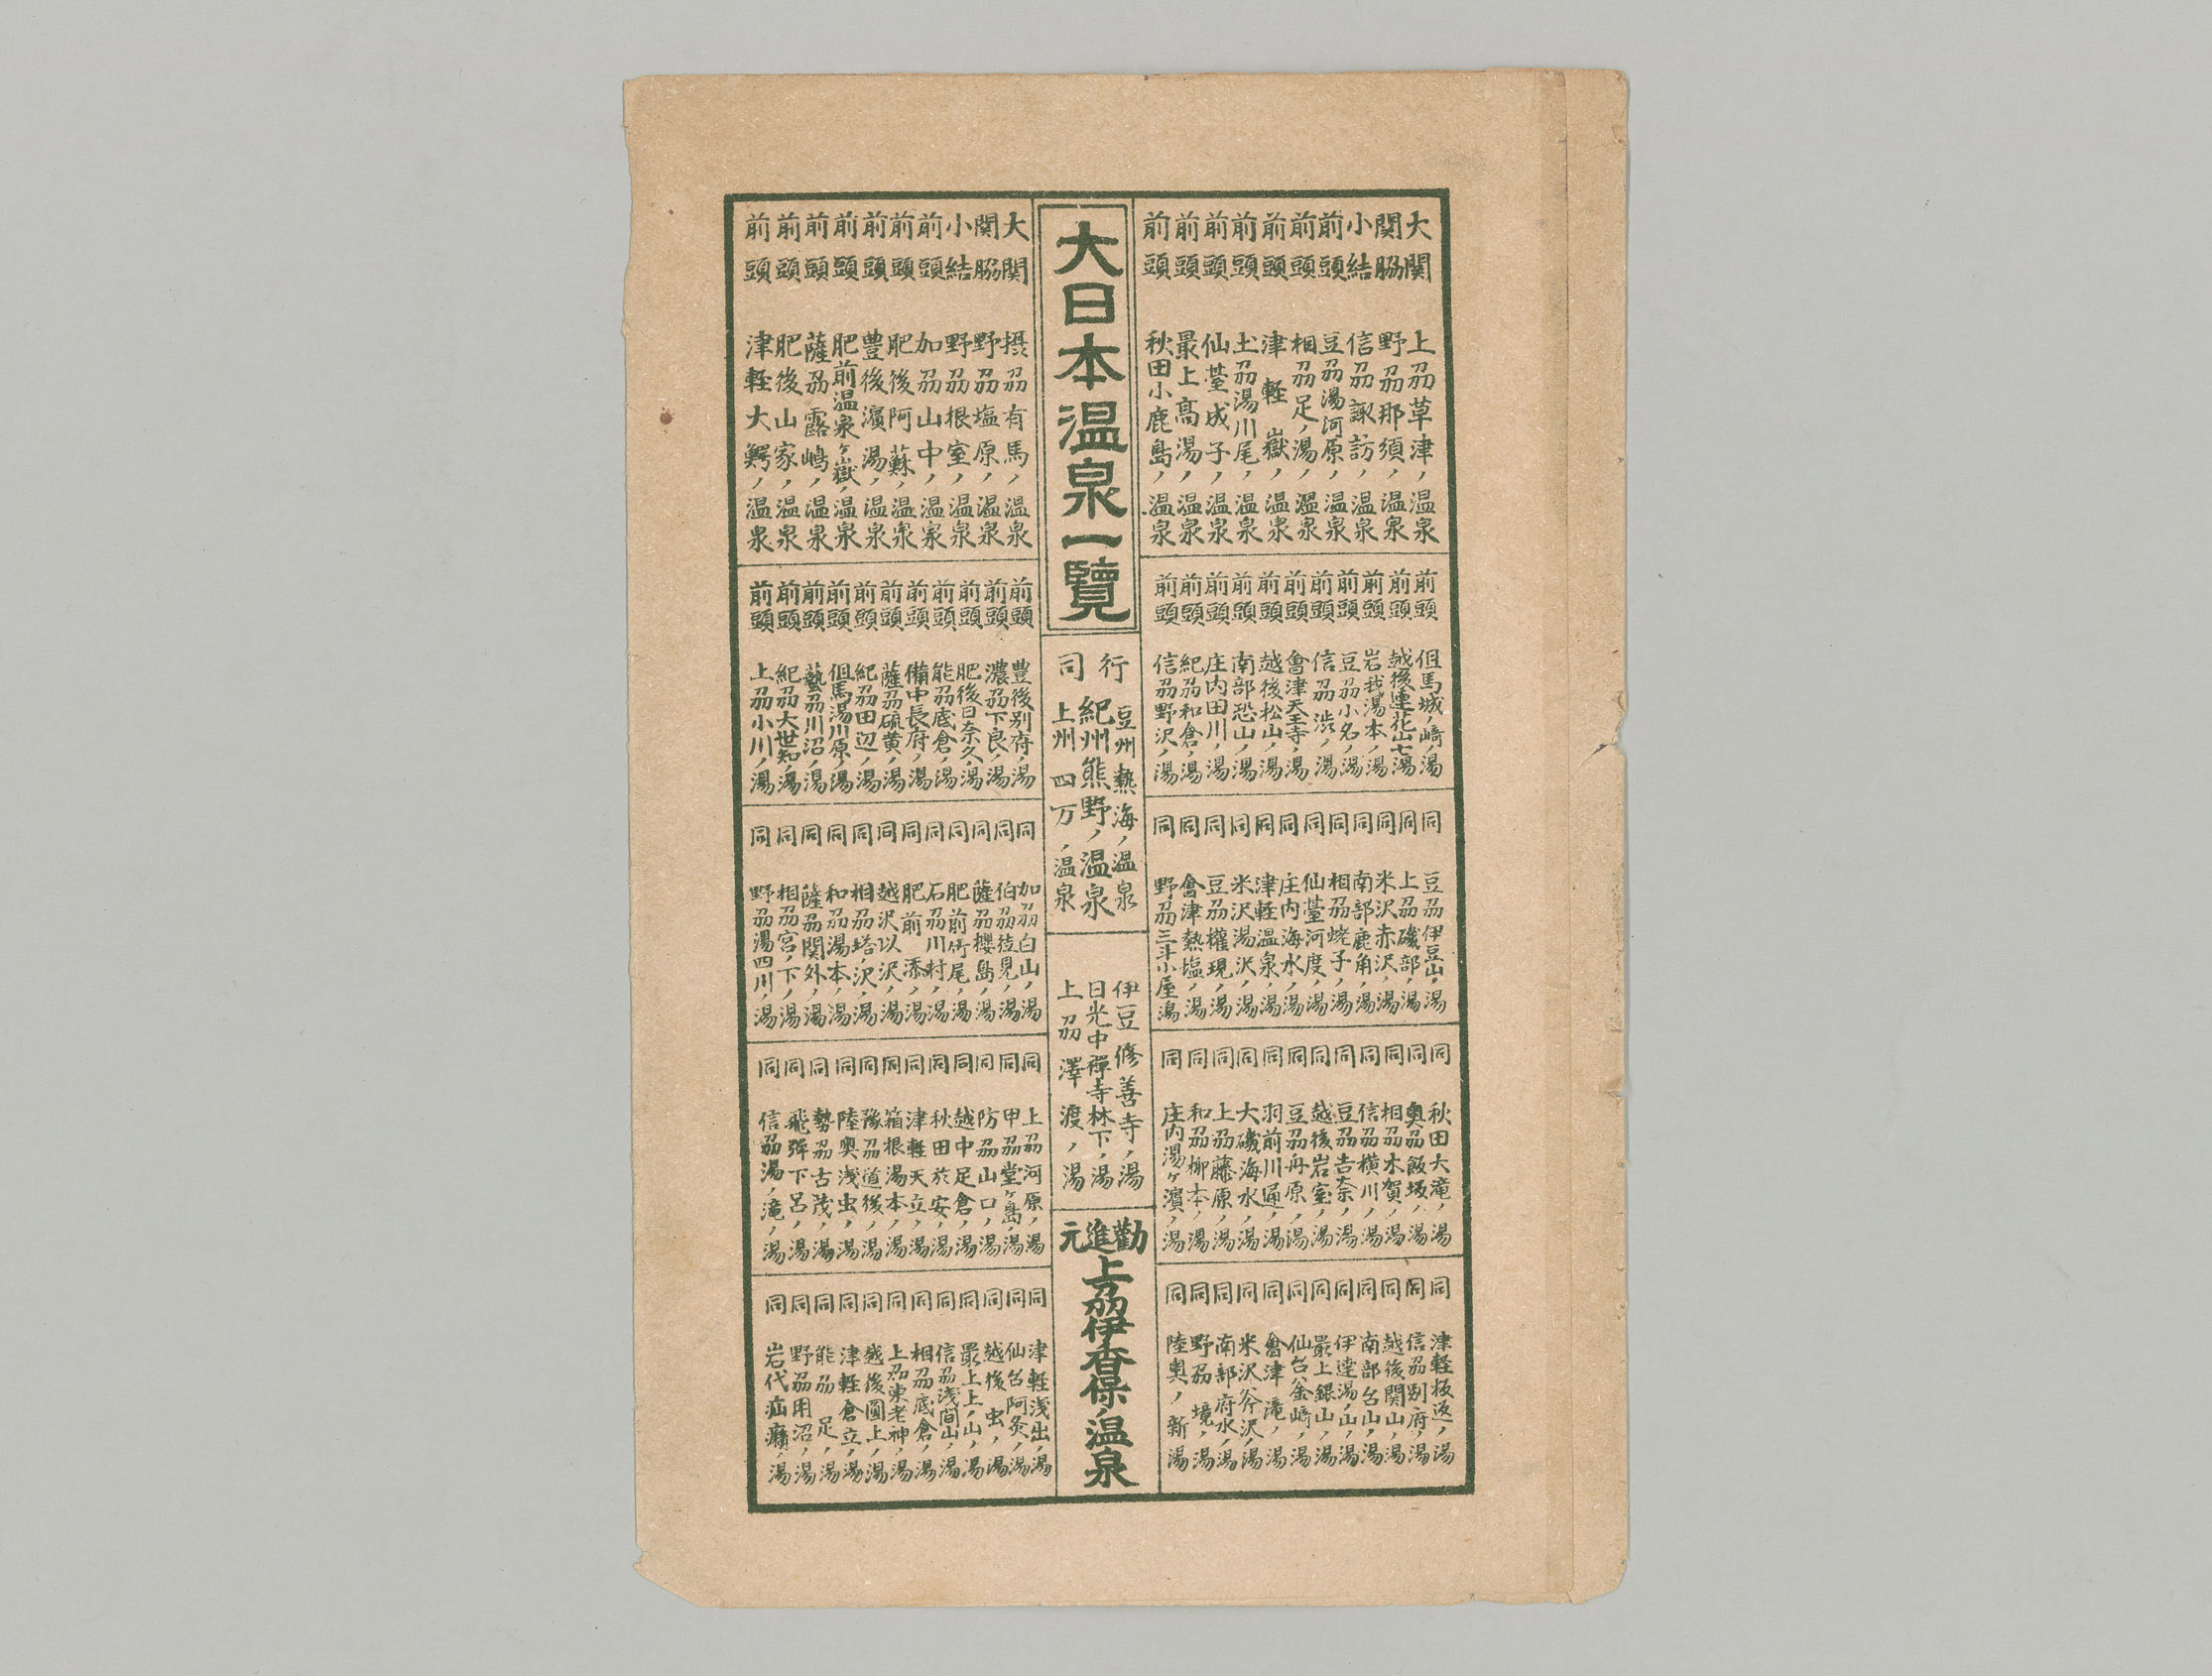 大日本温泉一覧
大関 上刕草津ノ温泉
関脇 野刕那須ノ温泉
小結 信刕諏訪ノ温泉
前頭 豆刕湯河原ノ温泉
前頭 相刕足ノ湯ノ温泉
前頭 津軽嶽ノ温泉
前頭 土刕湯川尾ノ温泉
前頭 仙䑓成子ノ温泉
前頭 最上髙湯ノ温泉
前頭 秋田小鹿島ノ温泉
前頭 但馬城ノ﨑ノ湯
前頭 越後蓮花山七湯
前頭 岩我湯本ノ湯
前頭 豆刕小名ノ湯
前頭 信刕渋ノ湯
前頭 會津天王寺ノ湯
前頭 越後松山ノ湯
前頭 南部恐山ノ湯
前頭 庄内田川ノ湯
前頭 紀刕和倉ノ湯
前頭 信刕野沢ノ湯
同 豆刕伊豆山ノ湯
同 上刕磯部ノ湯
同 米沢赤沢ノ湯
同 南部鹿角ノ湯
同 相刕姥子ノ湯
同 仙䑓河度ノ湯
同 庄内海水ノ湯
同 津軽温泉ノ湯
同 米沢湯沢ノ湯
同 豆刕權現ノ湯
同 會津熱塩ノ湯
同 野刕三斗小屋湯
同 秋田大滝ノ湯
同 奥刕飯坂ノ湯
同 相刕木賀ノ湯
同 信刕横川ノ湯
同 豆刕吉奈ノ湯
同 越後岩室ノ湯
同 豆刕舟原ノ湯
同 羽前川通ノ湯
同 大磯海水ノ湯
同 上刕藤原ノ湯
同 和刕柳本ノ湯
同 庄内湯ヶ濱ノ湯
同 津軽板返ノ湯
同 信刕別府ノ湯
同 越後関山ノ湯
同 南部台山ノ湯
同 伊達湯ノ山ノ湯
同 最上銀山ノ湯
同 仙台釜﨑ノ湯
同 會津滝ノ湯
同 米沢谷沢ノ湯
同 南部府水ノ湯
同 野刕境ノ湯
同 陸奥ノ新湯
行司
豆州熱海ノ温泉
紀州熊野ノ温泉
上州四万ノ温泉
伊豆修善寺ノ湯
日光中禪寺林下ノ湯
上刕澤渡ノ湯
勸進元
上刕伊香保ノ温泉
大関 摂刕有馬ノ温泉
関脇 野刕塩原ノ温泉
小結 野刕根室ノ温泉
前頭 加刕山中ノ温泉
前頭 肥後阿蘇ノ温泉
前頭 豊後濱湯ノ温泉
前頭 肥前温泉ヶ嶽ノ温泉
前頭 薩刕露嶋ノ温泉
前頭 肥後山家ノ温泉
前頭 津軽大鰐ノ温泉
前頭 豊後別府ノ湯
前頭 濃刕下良ノ湯
前頭 肥後日奈久ノ湯
前頭 能刕底倉ノ湯
前頭 備中長府ノ湯
前頭 薩刕硫黄ノ湯
前頭 紀刕田辺ノ湯
前頭 但馬湯川原ノ湯
前頭 藝刕川沼ノ湯
前頭 紀刕大世知ノ湯
前頭 上刕小川ノ湯
同 加刕白山ノ湯
同 伯刕徒見ノ湯
同 薩刕櫻島ノ湯
同 肥前竹尾ノ湯
同 石刕川村ノ湯
同 肥前添ノ湯
同 越沢以沢ノ湯
同 相刕塔ノ沢ノ湯
同 和刕湯本ノ湯
同 薩刕関外ノ湯
同 相刕宮ノ下ノ湯
同 野刕湯四川ノ湯
同 上刕河原ノ湯
同 甲刕堂ヶ島ノ湯
同 防刕山口ノ湯
同 越中足倉ノ湯
同 秋田於安ノ湯
同 津軽天立ノ湯
同 箱根湯本ノ湯
同 豫刕道後ノ湯
同 陸奥浅虫ノ湯
同 勢刕古茂ノ湯
同 飛弾下呂ノ湯
同 信刕湯ノ滝ノ湯
同 津軽浅出ノ湯
同 仙台阿炙ノ湯
同 越後虫ノ湯
同 最上上ノ山ノ湯
同 信刕浅間山ノ湯
同 相刕底倉ノ湯
同 上刕東老神ノ湯
同 越後圓上ノ湯
同 津軽倉立ノ湯
同 能刕足ノ湯
同 野刕用沼ノ湯
同 岩代疝癪ノ湯